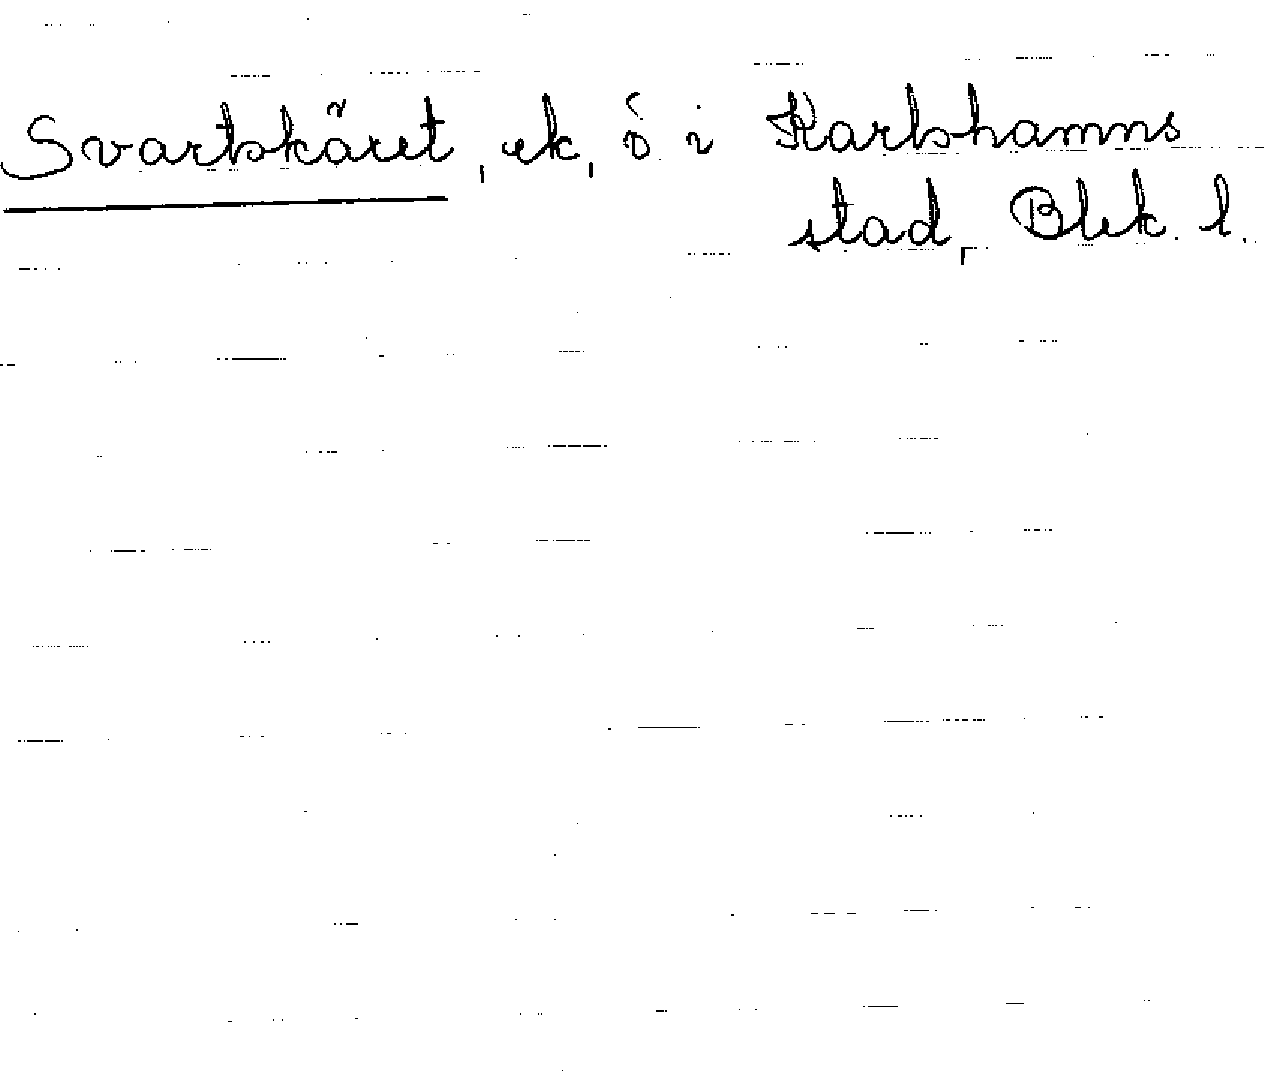 Svartskäret, ek, ö i Karlshamns
stad, Blek. l.